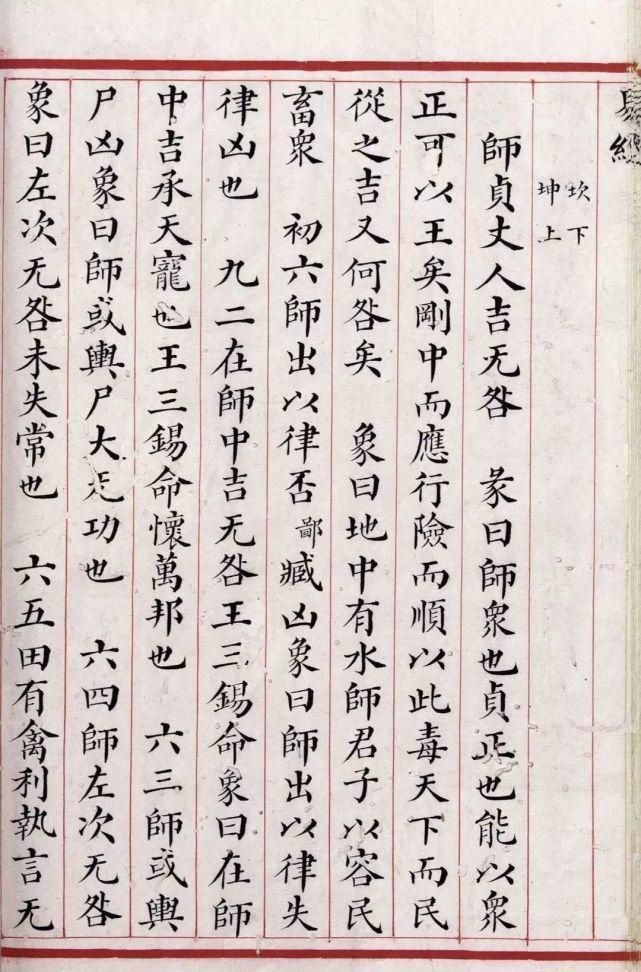 易經
坎下
坤上
師貞丈人吉无咎　彖曰師衆也貞正也能以衆
正可以王矣剛中而應行險而順以此毒天下而民
從之吉又何咎矣　象曰地中有水師君子以容民
畜衆　初六師出以律否鄙臧凶象曰師出以律失
律凶也　九二在師中吉无咎王三錫命象曰在師
中吉承天寵也王三錫命懷萬邦也　六三師或輿
尸凶象曰師或輿尸大无功也　六四師左次无咎
象曰左次无咎未失常也　六五田有禽利執言无